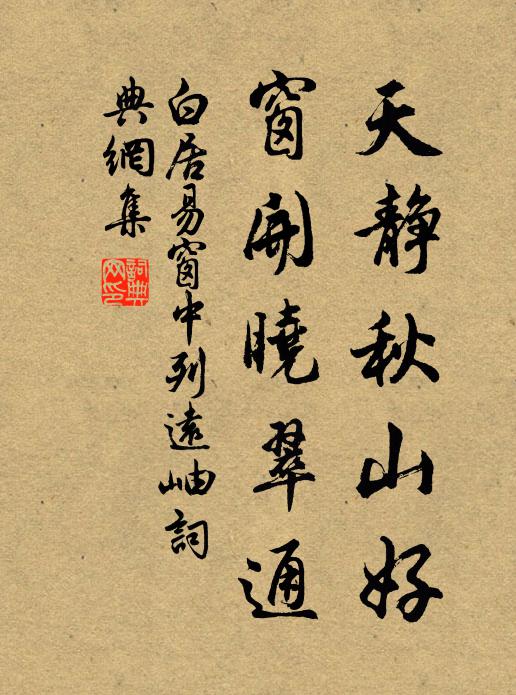 天静秋山好
窗開曉翠通
白居易窗中列遠岫詞
典網集
詞典
网印